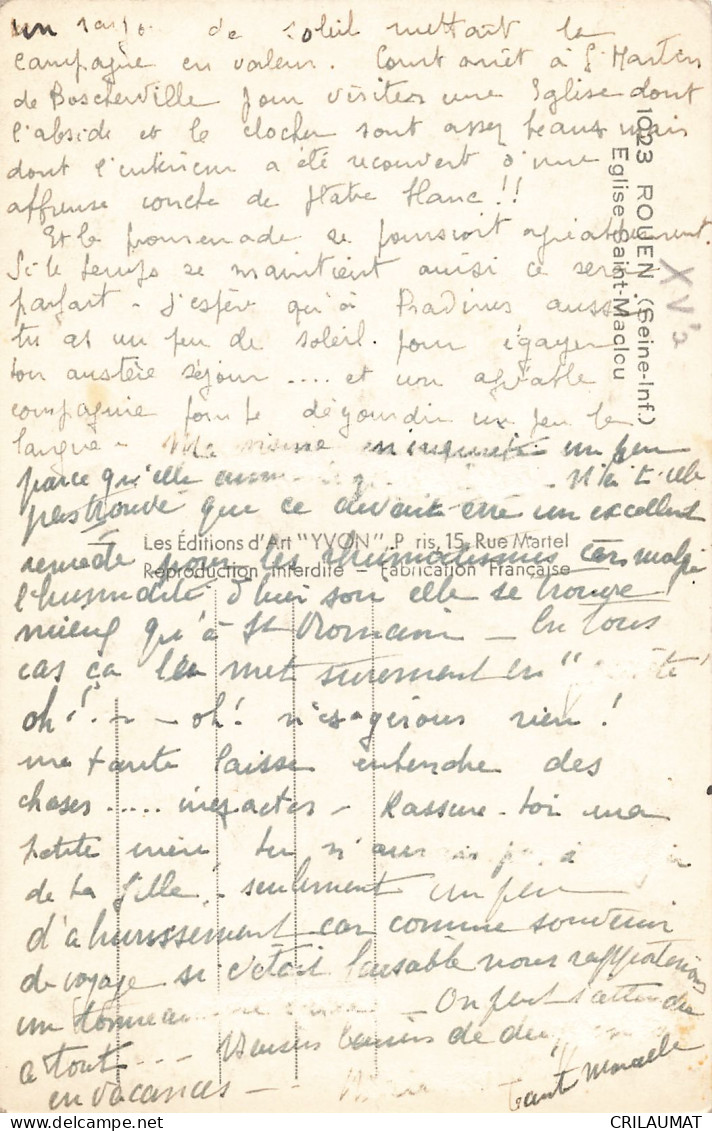 un rayon de soleil mettait la
campagne en valeur. Court arrêt à St Martin
de Boscherville pour visiter une Eglise dont
l'abside et le clocher sont assez beaux mais
dont l'intérieur a été recouvert d'une
affreuse couche de plâtre blanc!!
Et la promenade se poursuit agréablement.
Si le temps se maintient ainsi ce sera
parfait - J'espère qu'à Pradines aussi
tu as un peu de soleil pour égayer
ton austère séjour .... et une agréable
compagnie pour te dégourdir un peu la
langue -
un peu
parce qu'elle N'a t'elle
pas trouvé que ce devait être un excellent
remède pour les rhumatismes car malgré
l'humidité d'hier soir elle se trouve
mieux qu'à St Romain - En tous
cas ça l'a met surement en "
oh! - oh! n'exagérons rien!
ma tante laisse entendre des
choses ..... inexactes - Rassure-toi ma
petite mère, tu n'auras
de ta fille, seulement un peu
d'ahurissement car comme souvenir
de voyage si c'était faisable nous rapporterions
un tonneau - On peut s'attendre
à tout ... baisers de
en vacances - Tante Marcelle
1023 ROUEN (Seine-Inf.)
Eglise Saint-Maclou
XV's
Les Editions d'Art "YVON", P ris, 15, Rue Martel
Reproduction Interdite - Fabrication Française
CRILAUMAT